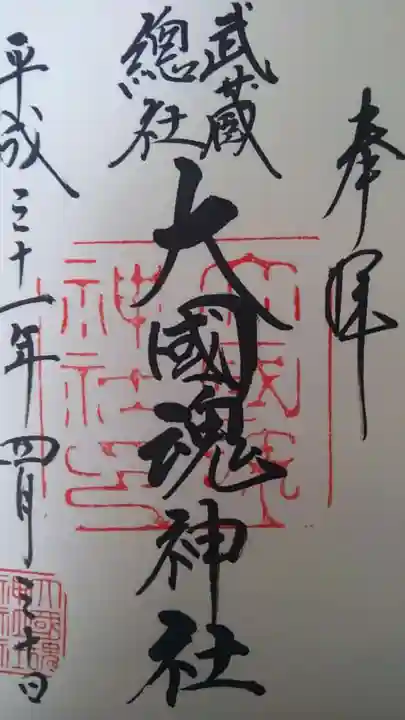 奉拝
武蔵
總社
大國魂神社
平成三十一年四月三十日
大國魂
神社印